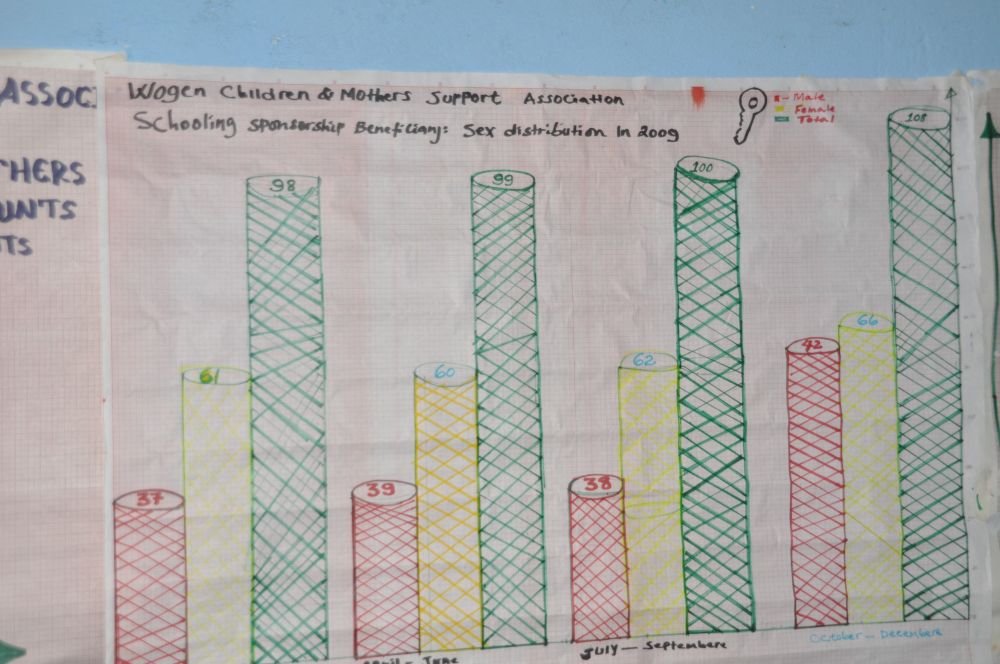 ASSOC.
HERS
UNTS
TS
Wogen Children & Mothers Support Association
Schooling sponsorship Beneficiary: Sex distribution In 2009
- Male
Female
Total
98
99
100
108
61
60
62
66
42
37
39
38
April - June
July - Septembere
October - Decembere